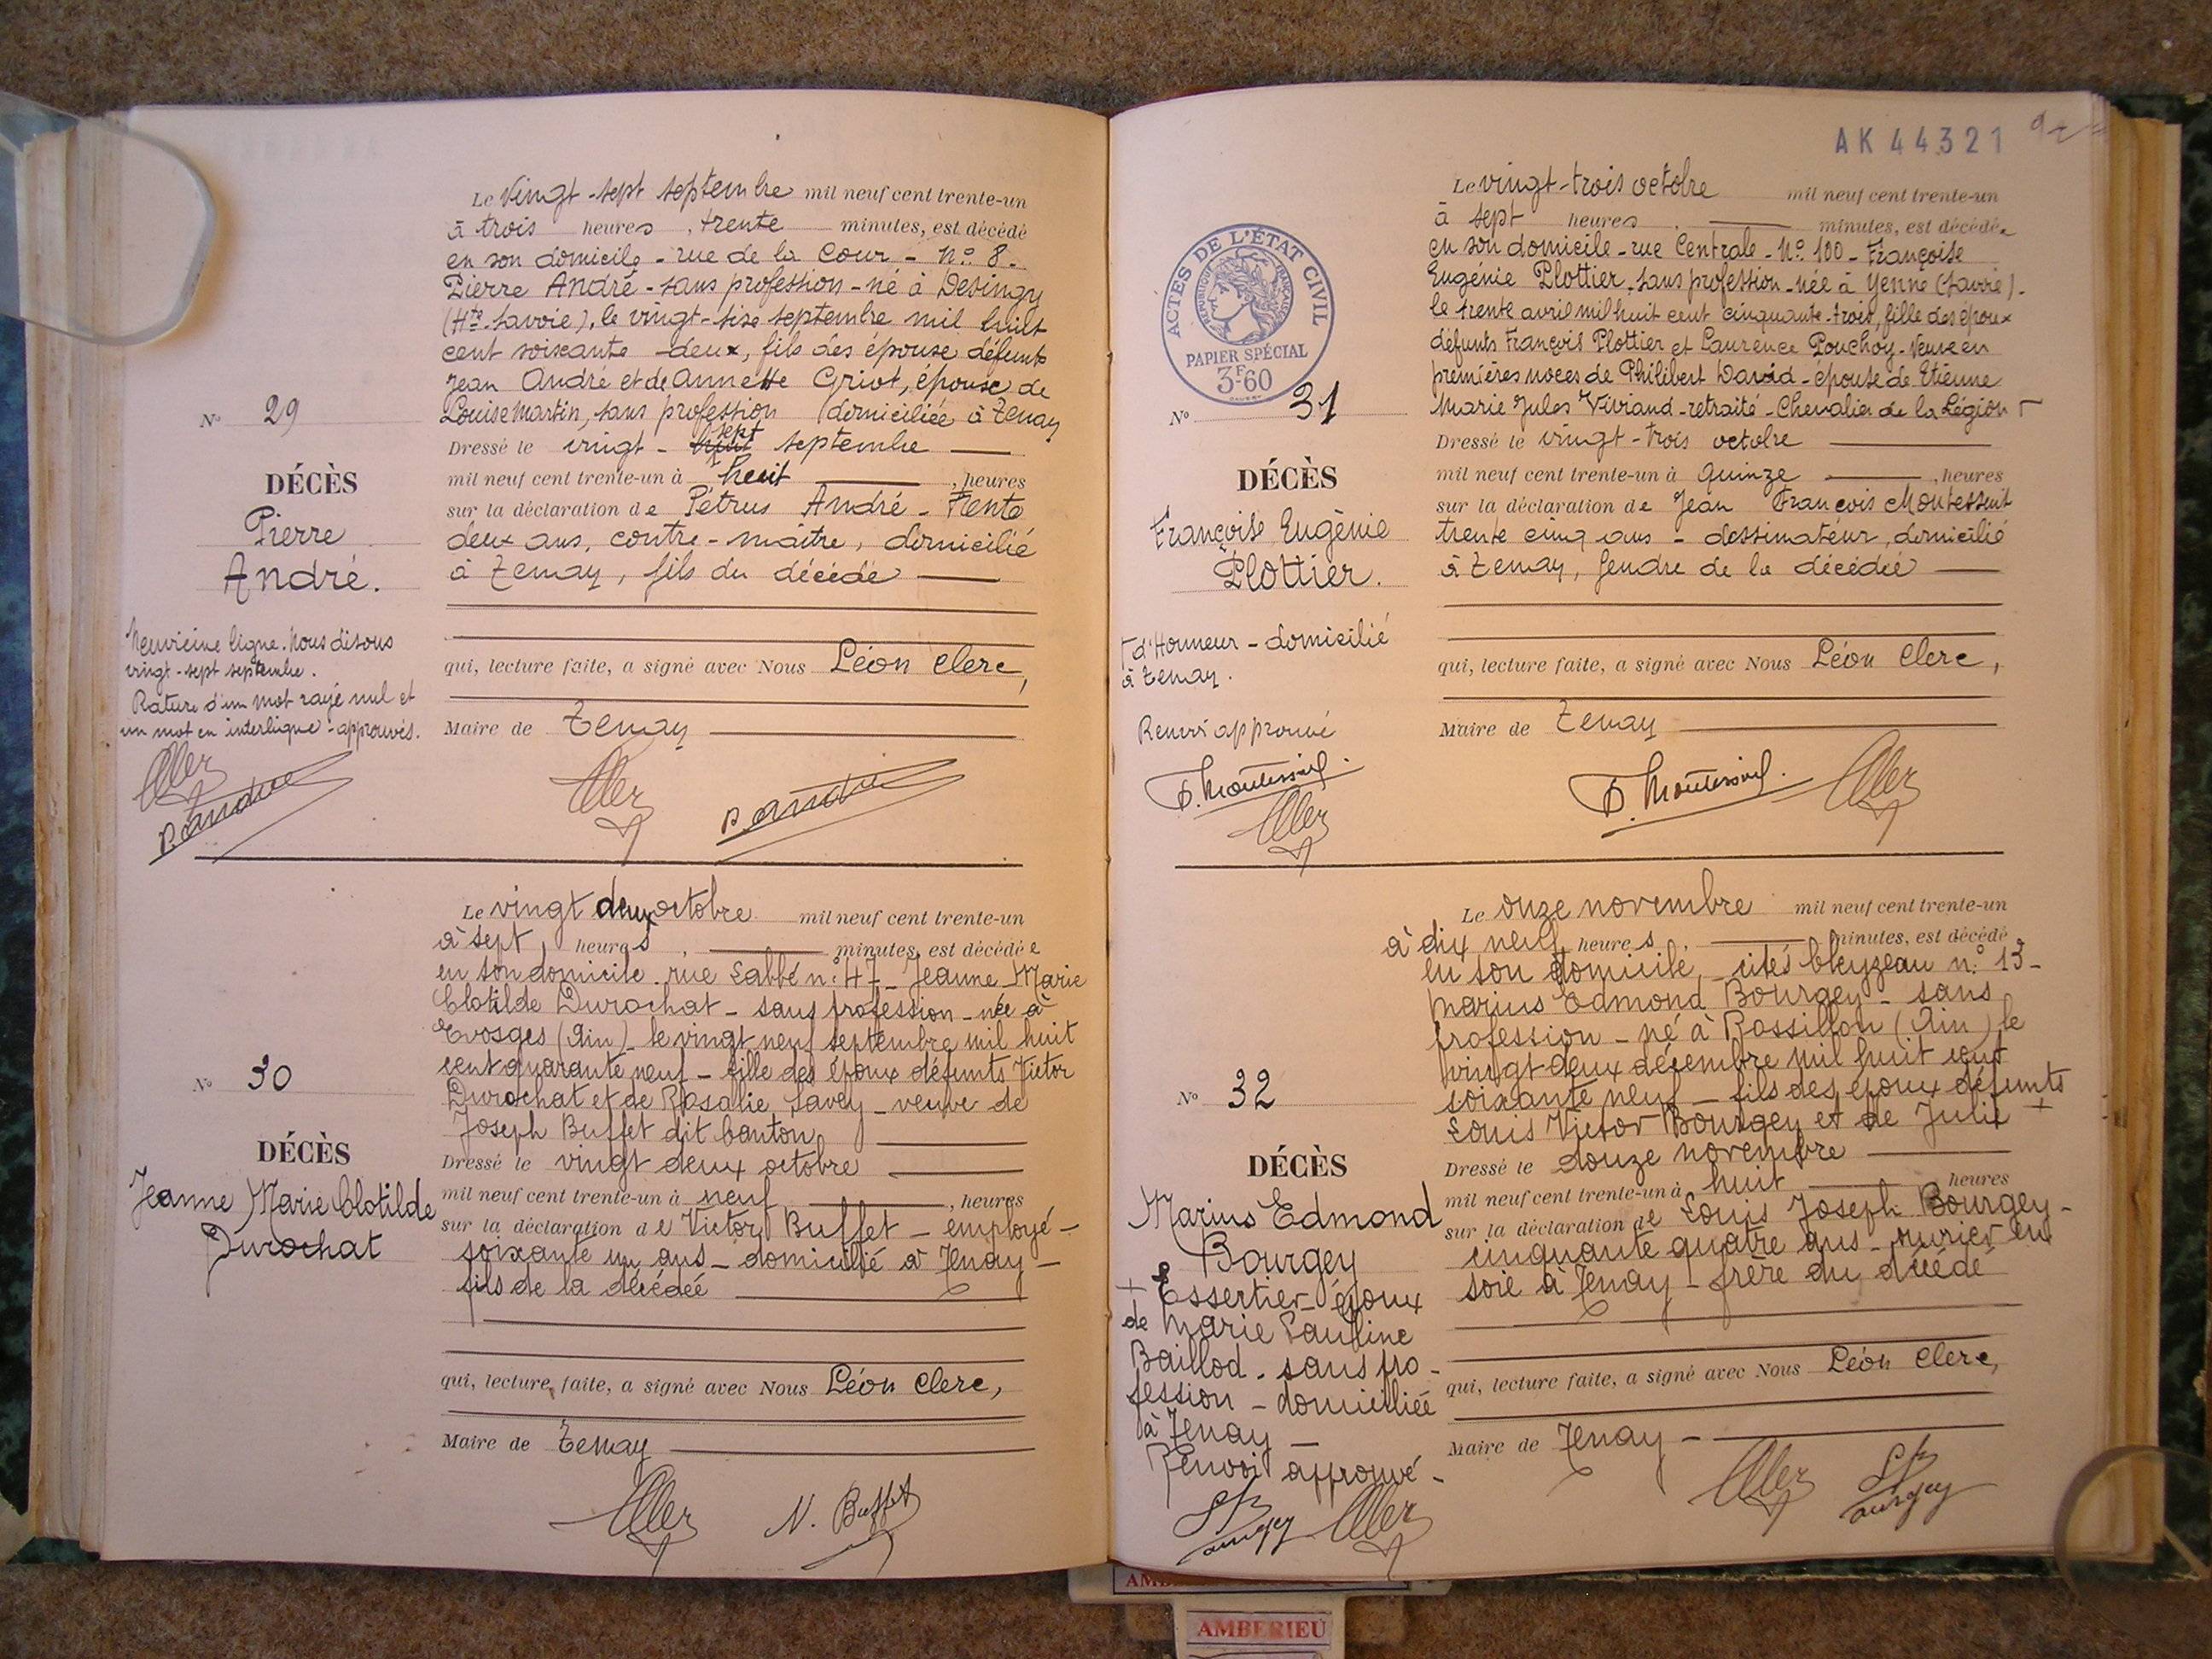 Le vingt-sept septembre mil neuf cent trente-un
à trois heures, trente minutes, est décédé
en son domicile - rue de la Cour - N° 8 -
Pierre André - sans profession - né à Desingy
(Hte-Savoie), le vingt-six septembre mil huit
cent soixante-deux, fils des épouse défunts
Jean André et de Annette Griot, épouse de
N° 29
Louise Martin, sans profession domiciliée à Tenay
Dressé le vingt-huit sept septembre
mil neuf cent trente-un à huit, heures
DÉCÈS
Pierre
André.
sur la déclaration de Pétrus André - Trente
deux ans, contre-maître, domicilié
à Tenay, fils du décédé
Neuvième ligne. Nous disons
vingt-sept septembre.
Rature d'un mot rayé nul et
un mot en interligne - approuvés.
qui, lecture faite, a signé avec Nous Léon Clerc,
Maire de Tenay
P. André
P. André
Le vingt deux octobre mil neuf cent trente-un
à sept, heures, minutes, est décédée
en son domicile rue Labbé n° 47 - Jeanne Marie
Clotilde Durochat - sans profession - née à
Evosges (Ain) - le vingt neuf septembre mil huit
cent quarante neuf - fille des époux défunts Victor
N° 30
Durochat et de Rosalie Savey - veuve de
Joseph Buffet dit Canton
DÉCÈS
Jeanne Marie Clotilde
Durochat
Dressé le vingt deux octobre
mil neuf cent trente-un à neuf, heures
sur la déclaration de Victor Buffet - employé -
soixante un ans - domicilié à Tenay -
fils de la décédée
qui, lecture faite, a signé avec Nous Léon Clerc,
Maire de Tenay
V. Buffet
AK 44321
Le vingt-trois octobre mil neuf cent trente-un
à sept heures. minutes, est décédée
en son domicile - rue Centrale - N° 100 - Françoise
Eugénie Plottier, sans profession - née à Yenne (Savoie) -
le trente avril mil huit cent cinquante-trois, fille des époux
défunts François Plottier et Laurence Pouchoy - Veuve en
premières noces de Philibert David - épouse de Etienne
Marie Jules Viviand - retraité - Chevalier de la Légion
ACTES DE L'ÉTAT CIVIL
RÉPUBLIQUE FRANÇAISE
PAPIER SPÉCIAL
3F60
N° 31
Dressé le vingt-trois octobre
mil neuf cent trente-un à quinze, heures
DÉCÈS
Françoise Eugénie
Plottier.
sur la déclaration de Jean François Montessuit
trente cinq ans - dessinateur, domicilié
à Tenay, gendre de la décédée
d'Honneur - domicilié
à Tenay.
Renvoi approuvé
qui, lecture faite, a signé avec Nous Léon Clerc,
Maire de Tenay
Le onze novembre mil neuf cent trente-un
à dix neuf, heures, minutes, est décédé
en son domicile, cités Cleyzeau n° 13 -
Marius Edmond Bourgey - sans
profession - né à Rossillon (Ain) le
vingt-deux décembre mil huit cent
soixante neuf - fils des époux défunts
Louis Victor Bourgey et de Julie +
N° 32
Dressé le douze novembre
mil neuf cent trente-un à huit heures
DÉCÈS
Marius Edmond
Bourgey
sur la déclaration de Louis Joseph Bourgey -
cinquante quatre ans - ouvrier en
soie à Tenay - frère du décédé
+ Essertier - époux
de Marie Pauline
Baillod - sans pro-
fession - domiciliée
à Tenay -
Renvoi approuvé -
qui, lecture faite, a signé avec Nous Léon Clerc,
Maire de Tenay -
AMBERIEU